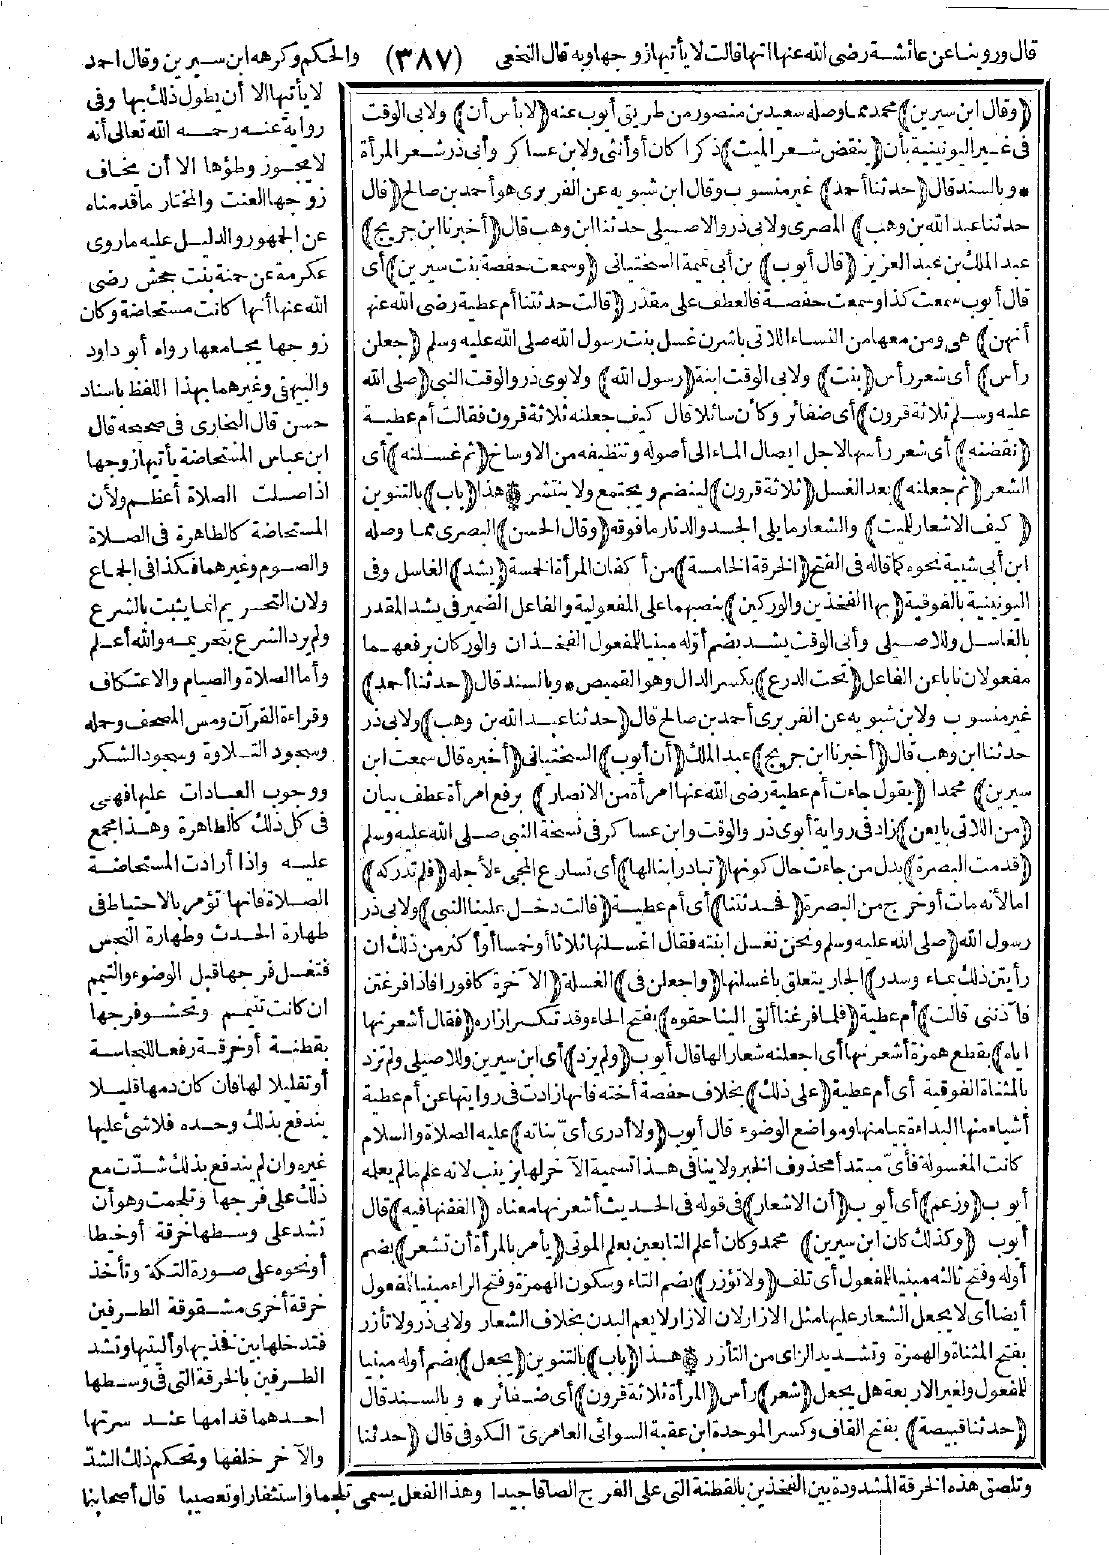 قال وروينا عن عائشة رضى الله عنها انها قالت لا يأتيها زوجها وبه قال النخعى (٣٨٧) والحكم وكرهه ابن سيرين وقال احمد
(وقال ابن سيرين) محمد مما وصله سعيد بن منصور من طريق أيوب عنه (لا بأس أن) ولابى الوقت
فى غير اليونينية بأن (ينقض شعر الميت) ذكرا كان أو أنثى ولابن عساكر وأبى ذر شعر المرأة
* وبالسند قال (حدثنا أحمد) غير منسوب وقال ابن شبويه عن الفربرى هو أحمد بن صالح (قال
حدثنا عبد الله بن وهب) المصرى ولابى ذر والاصيلى حدثنا ابن وهب قال (أخبرنا ابن جريج)
عبد الملك بن عبد العزيز (قال أيوب) بن أبى تميمة السختيانى (وسمعت حفصة بنت سيرين) أى
قال أيوب سمعت كذا وسمعت حفصة فالعطف على مقدر (قالت حدثتنا أم عطية رضى الله عنها
أنهن) هى ومن معها من النساء اللاتى باشرن غسل بنت رسول الله صلى الله عليه وسلم (جعلن
رأس) أى شعر رأس (بنت) ولابى الوقت ابنة (رسول الله) ولابوى ذر والوقت النبى (صلى الله
عليه وسلم ثلاثة قرون) أى ضفائر وكأن سائلا قال كيف جعلنه ثلاثة قرون فقالت أم عطية
(نقضنه) أى شعر رأسها لاجل ايصال الماء الى أصوله وتنظيفه من الاوساخ (ثم غسلنه) أى
الشعر (ثم جعلنه) بعد الغسل (ثلاثة قرون) لينضم ويجتمع ولا ينتشر * هذا (باب) بالتنوين
(كيف الاشعار للميت) والشعار ما يلى الجسد والدثار ما فوقه (وقال الحسن) البصرى مما وصله
ابن أبى شيبة نحوه كما قاله فى الفتح (الخرقة الخامسة) من أكفان المرأة الخمسة (يشد) الغاسل وفى
اليونينية بالفوقية (بها الفخذين والوركين) بنصبهما على المفعولية والفاعل الضمير فى يشد المقدر
بالغاسل وللاصيلى وأبى الوقت يشد بضم أوله مبنيا للمفعول الفخذان والوركان برفعهما
مفعولان نابا عن الفاعل (تحت الدرع) بكسر الدال وهو القميص * وبالسند قال (حدثنا أحمد)
غير منسوب ولابن شبويه عن الفربرى أحمد بن صالح قال (حدثنا عبد الله بن وهب) ولابى ذر
حدثنا ابن وهب قال (أخبرنا ابن جريج) عبد الملك (أن أيوب) السختيانى (أخبره قال سمعت ابن
سيرين) محمدا (يقول جاءت أم عطية رضى الله عنها امرأة من الانصار) برفع امرأة عطف بيان
(من اللاتى بايعن) زاد فى رواية أبوى ذر والوقت وابن عساكر فى نسخة النبى صلى الله عليه وسلم
(قدمت البصرة) بدل من جاءت حال كونها (تبادر ابنا لها) أى تسارع المجىء لأجله (فلم تدركه)
اما لأنه مات أو خرج من البصرة (فحدثتنا) أى أم عطية (قالت دخل علينا النبى) ولابى ذر
رسول الله (صلى الله عليه وسلم ونحن نغسل ابنته فقال اغسلنها ثلاثا أو خمسا أوأكثر من ذلك ان
رأيتن ذلك بماء وسدر) الجار يتعلق باغسلنها (واجعلن فى) الغسلة (الآخرة كافورا فاذا فرغتن
فآذننى قالت) أم عطية (فلما فرغنا ألقى الينا حقوه) بفتح الحاء وقد تكسر ازاره (فقال أشعرنها
اياه) بقطع همزة أشعرنها أى اجعلنه شعارا لها قال أيوب (ولم يزد) أى ابن سيرين وللاصيلى ولم تزد
بالمثناة الفوقية أى أم عطية (على ذلك) بخلاف حفصة أخته فانها زادت فى روايتها عن أم عطية
أشياء منها البداءة بميامنها ومواضع الوضوء قال أيوب (ولا أدرى أىّ بناته) عليه الصلاة والسلام
كانت المغسولة فأىّ مبتدأ محذوف الخبر ولا ينافى هذا تسمية الآخر لها بزينب لانه علم مالم يعلمه
أيوب (وزعم) أى أيوب (أن الاشعار) فى قوله فى الحديث أشعرنها معناه (الففنها فيه) قال
أيوب (وكذلك كان ابن سيرين) محمد وكان أعلم التابعين بعلم الموتى (يأمر بالمرأة أن تشعر) بضم
أوله وفتح ثالثه مبنيا للمفعول أى تلف (ولا تؤزر) بضم التاء وسكون الهمزة وفتح الراء مبنيا للمفعول
أيضا أى لا يجعل الشعار عليها مثل الازار لان الازار لا يعم البدن بخلاف الشعار ولابى ذر ولا تأزر
بفتح المثناة والهمزة وتشديد الزاى من التأزر * هذا (باب) بالتنوين (يجعل) بضم أوله مبنيا
للمفعول ولغير الاربعة هل يجعل (شعر) رأس (المرأة ثلاثة قرون) أى ضفائر * وبالسند قال
(حدثنا قبيصة) بفتح القاف وكسر الموحدة ابن عقبة السوائى العامرىّ الكوفى قال (حدثنا
لا يأتيها الا أن يطول ذلك بها وفى
رواية عنه رحمه الله تعالى أنه
لا يجوز وطؤها الا أن يخاف
زوجها العنت والمختار ما قدمناه
عن الجمهور والدليل عليه ماروى
عكرمة عن حمنة بنت جحش رضى
الله عنها أنها كانت مستحاضة وكان
زوجها يجامعها رواه أبو داود
والبيهقى وغيرهما بهذا اللفظ باسناد
حسن قال البخارى فى صحيحه قال
ابن عباس المستحاضة يأتيها زوجها
اذا صلت الصلاة أعظم ولأن
المستحاضة كالطاهرة فى الصلاة
والصوم وغيرهما فكذا فى الجماع
ولان التحريم انما يثبت بالشرع
ولم يرد الشرع بتحريمه والله أعلم
وأما الصلاة والصيام والاعتكاف
وقراءة القرآن ومس المصحف وحمله
وسجود التلاوة وسجود الشكر
ووجوب العبادات عليها فهى
فى كل ذلك كالطاهرة وهذا مجمع
عليه واذا أرادت المستحاضة
الصلاة فانها تؤمر بالاحتياط فى
طهارة الحدث وطهارة النجس
فتغسل فرجها قبل الوضوء والتيمم
ان كانت تتيمم وتحشو فرجها
بقطنة أو خرقة رفعا للنجاسة
أو تقليلا لها فان كان دمها قليلا
يندفع بذلك وحده فلا شئ عليها
غيره وان لم يندفع بذلك شدّت مع
ذلك على فرجها وتلجمت وهو أن
تشد على وسطها خرقة أو خيطا
أو نحوه على صورة التكة وتأخذ
خرقة أخرى مشقوقة الطرفين
فتدخلها بين فخذيها وأليتيها وتشد
الطرفين بالخرقة التى فى وسطها
احدهما قدامها عند سرتها
والآخر خلفها وتحكم ذلك الشدّ
وتلصق هذه الخرقة المشدودة بين الفخذين بالقطنة التى على الفرج الصاقا جيدا وهذا الفعل يسمى تلجما واستثفارا وتعصيبا قال أصحابنا